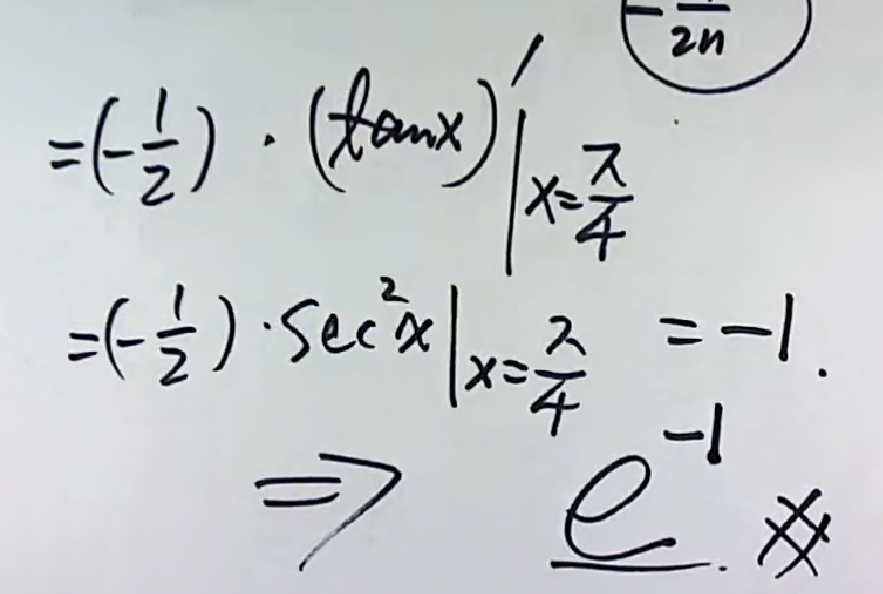 - 1/2n
=(-1/2)·(tanx)'|x=π/4
=(-1/2)·sec²x|x=π/4 =-1.
⇒ e⁻¹.